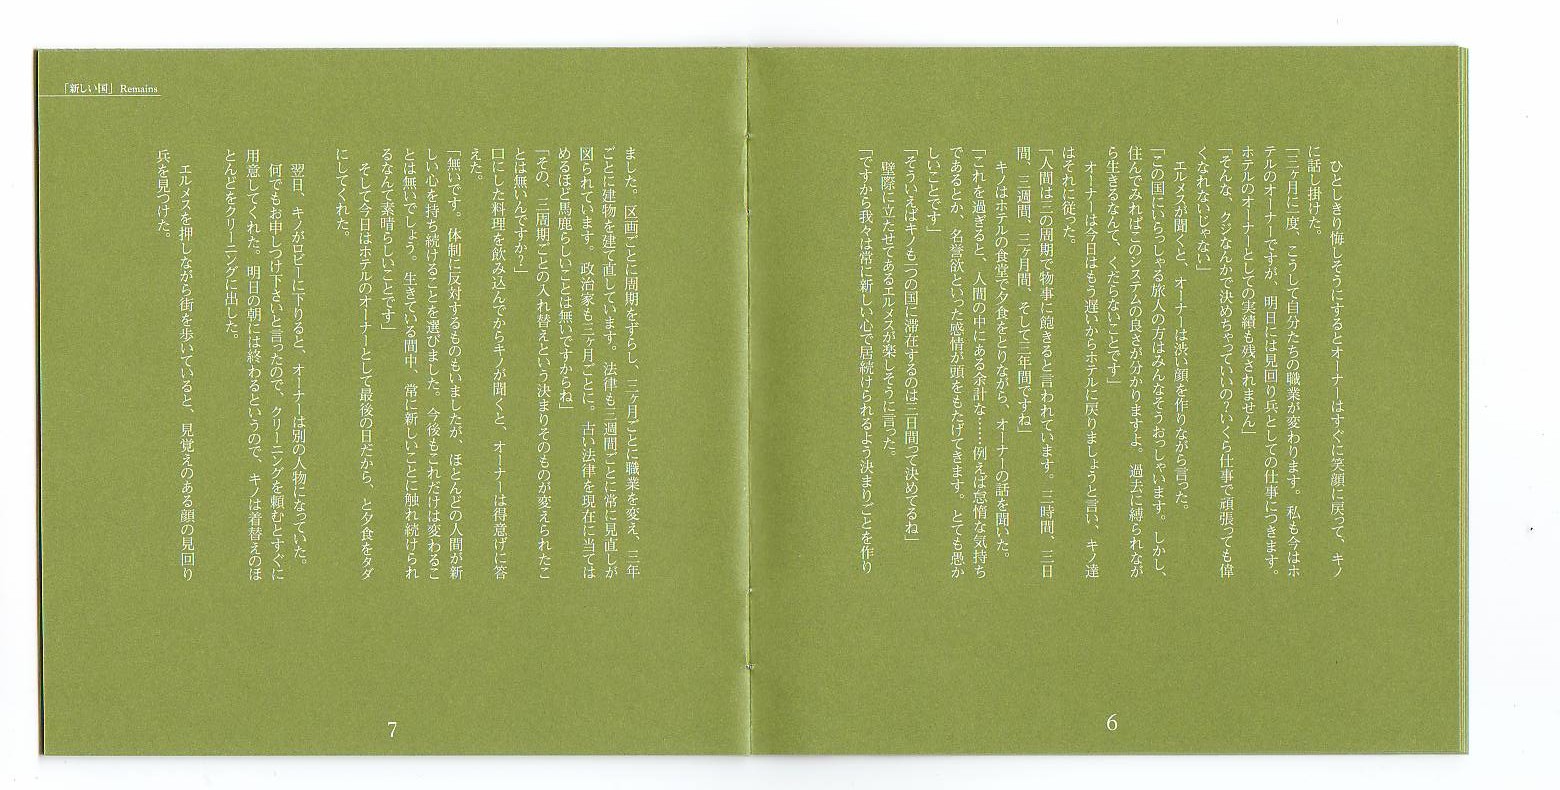 ひとしきり悔しそうにするとオーナーはすぐに笑顔に戻って、キノ
に話し掛けた。
「三ヶ月に一度、こうして自分たちの職業が変わります。私も今はホ
テルのオーナーですが、明日には見回り兵としての仕事につきます。
ホテルのオーナーとしての実績も残されません」
「そんな、クジなんかで決めちゃっていいの？いくら仕事で頑張っても偉
くなれないじゃない」
エルメスが聞くと、オーナーは渋い顔を作りながら言った。
「この国にいらっしゃる旅人の方はみんなそうおっしゃいます。しかし、
住んでみればこのシステムの良さが分かりますよ。過去に縛られなが
ら生きるなんて、くだらないことです」
オーナーは今日はもう遅いからホテルに戻りましょうと言い、キノ達
はそれに従った。
「人間は三の周期で物事に飽きると言われています。三時間、三日
間、三週間、三ヶ月間、そして三年間ですね」
キノはホテルの食堂で夕食をとりながら、オーナーの話を聞いた。
「これを過ぎると、人間の中にある余計な……例えば怠惰な気持ち
であるとか、名誉欲といった感情が頭をもたげてきます。とても愚か
しいことです」
「そういえばキノも一つの国に滞在するのは三日間って決めてるね」
壁際に立たせてあるエルメスが楽しそうに言った。
「ですから我々は常に新しい心で居続けられるよう決まりごとを作り
6
「新しい国」 Remains
ました。区画ごとに周期をずらし、三ヶ月ごとに職業を変え、三年
ごとに建物を建て直しています。法律も三週間ごとに常に見直しが
図られています。政治家も三ヶ月ごとに。古い法律を現在に当ては
めるほど馬鹿らしいことは無いですからね」
「その、三周期ごとの入れ替えという決まりそのものが変えられたこ
とは無いんですか？」
口にした料理を飲み込んでからキノが聞くと、オーナーは得意げに答
えた。
「無いです。体制に反対するものもいましたが、ほとんどの人間が新
しい心を持ち続けることを選びました。今後もこれだけは変わるこ
とは無いでしょう。生きている間中、常に新しいことに触れ続けられ
るなんて素晴らしいことです」
そして今日はホテルのオーナーとして最後の日だから、と夕食をタダ
にしてくれた。
翌日、キノがロビーに下りると、オーナーは別の人物になっていた。
何でもお申しつけ下さいと言ったので、クリーニングを頼むとすぐに
用意してくれた。明日の朝には終わるというので、キノは着替えのほ
とんどをクリーニングに出した。
エルメスを押しながら街を歩いていると、見覚えのある顔の見回り
兵を見つけた。
7